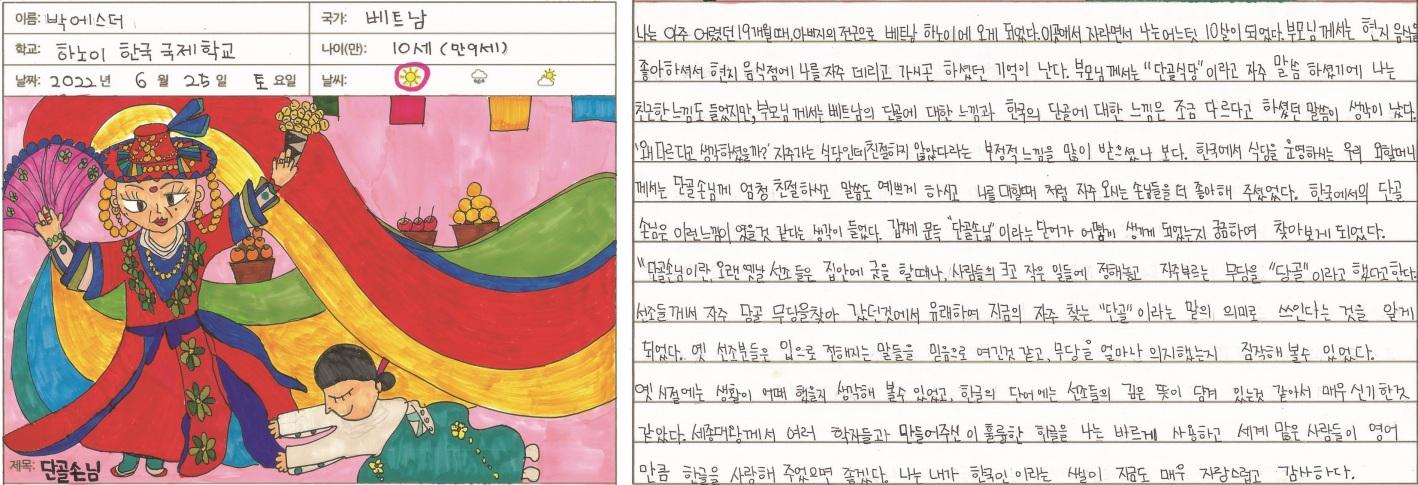 이름: 박에스더
국가: 베트남
학교: 하노이 한국 국제학교
나이(만): 10세 (만9세)
날짜: 2022년 6월 25일 토요일
날씨:
제목: 단골손님
나는 아주 어렸던 19개월때, 아버지의 전근으로 베트남 하노이에 오게 되었다. 이곳에서 자라면서 나는 어느덧 10살이 되었다. 부모님께서는 현지 음식을
좋아하셔서 현지 음식점에 나를 자주 데리고 가시곤 하셨던 기억이 난다. 부모님께서는 "단골식당" 이라고 자주 말씀 하셨기에 나는
친근한 느낌도 들었지만, 부모님께서는 베트남의 단골에 대한 느낌과 한국의 단골에 대한 느낌은 조금 다르다고 하셨던 말씀이 생각이 났다.
'왜 다르다고 생각하셨을까?' 자주가는 식당인데 친절하지 않았다라는 부정적 느낌을 많이 받으셨나 보다. 한국에서 식당을 운영하시는 우리 외할머니
께서는 단골손님께 엄청 친절하시고 말씀도 예쁘게 하시고 나를 대할때 처럼 자주 오시는 손님들을 더 좋아해 주셨었다. 한국에서의 단골
손님은 이런느낌이 였을것 같다는 생각이 들었다. 갑자기 문득 "단골손님" 이라는 단어가 어떻게 생기게 되었는지 궁금하여 찾아보게 되었다.
"단골손님이란, 오랜 옛날 선조들은 집안에 굿을 할때나, 사람들의 크고 작은 일들에 정해놓고 자주부르는 무당을 "당골" 이라고 했다고한다.
선조들께서 자주 당골 무당을찾아 갔던것에서 유래하여 지금의 자주 찾는 "단골" 이라는 말의 의미로 쓰인다는 것을 알게
되었다. 옛 선조분들은 입으로 전해지는 말들을 믿음으로 여긴것 같고, 무당을 얼마나 의지했는지 짐작해 볼수 있었다.
옛 시절에는 생활이 어떠 했을지 생각해 볼수 있었고, 한글의 단어에는 선조들의 깊은 뜻이 담겨 있는것 같아서 매우 신기한것
같았다. 세종대왕께서 여러 학자들과 만들어주신 이 훌륭한 한글을 나는 바르게 사용하고 세계 많은 사람들이 영어
만큼 한글을 사랑해 주었으면 좋겠다. 나는 내가 한국인 이라는 사실이 지금도 매우 자랑스럽고 감사하다.